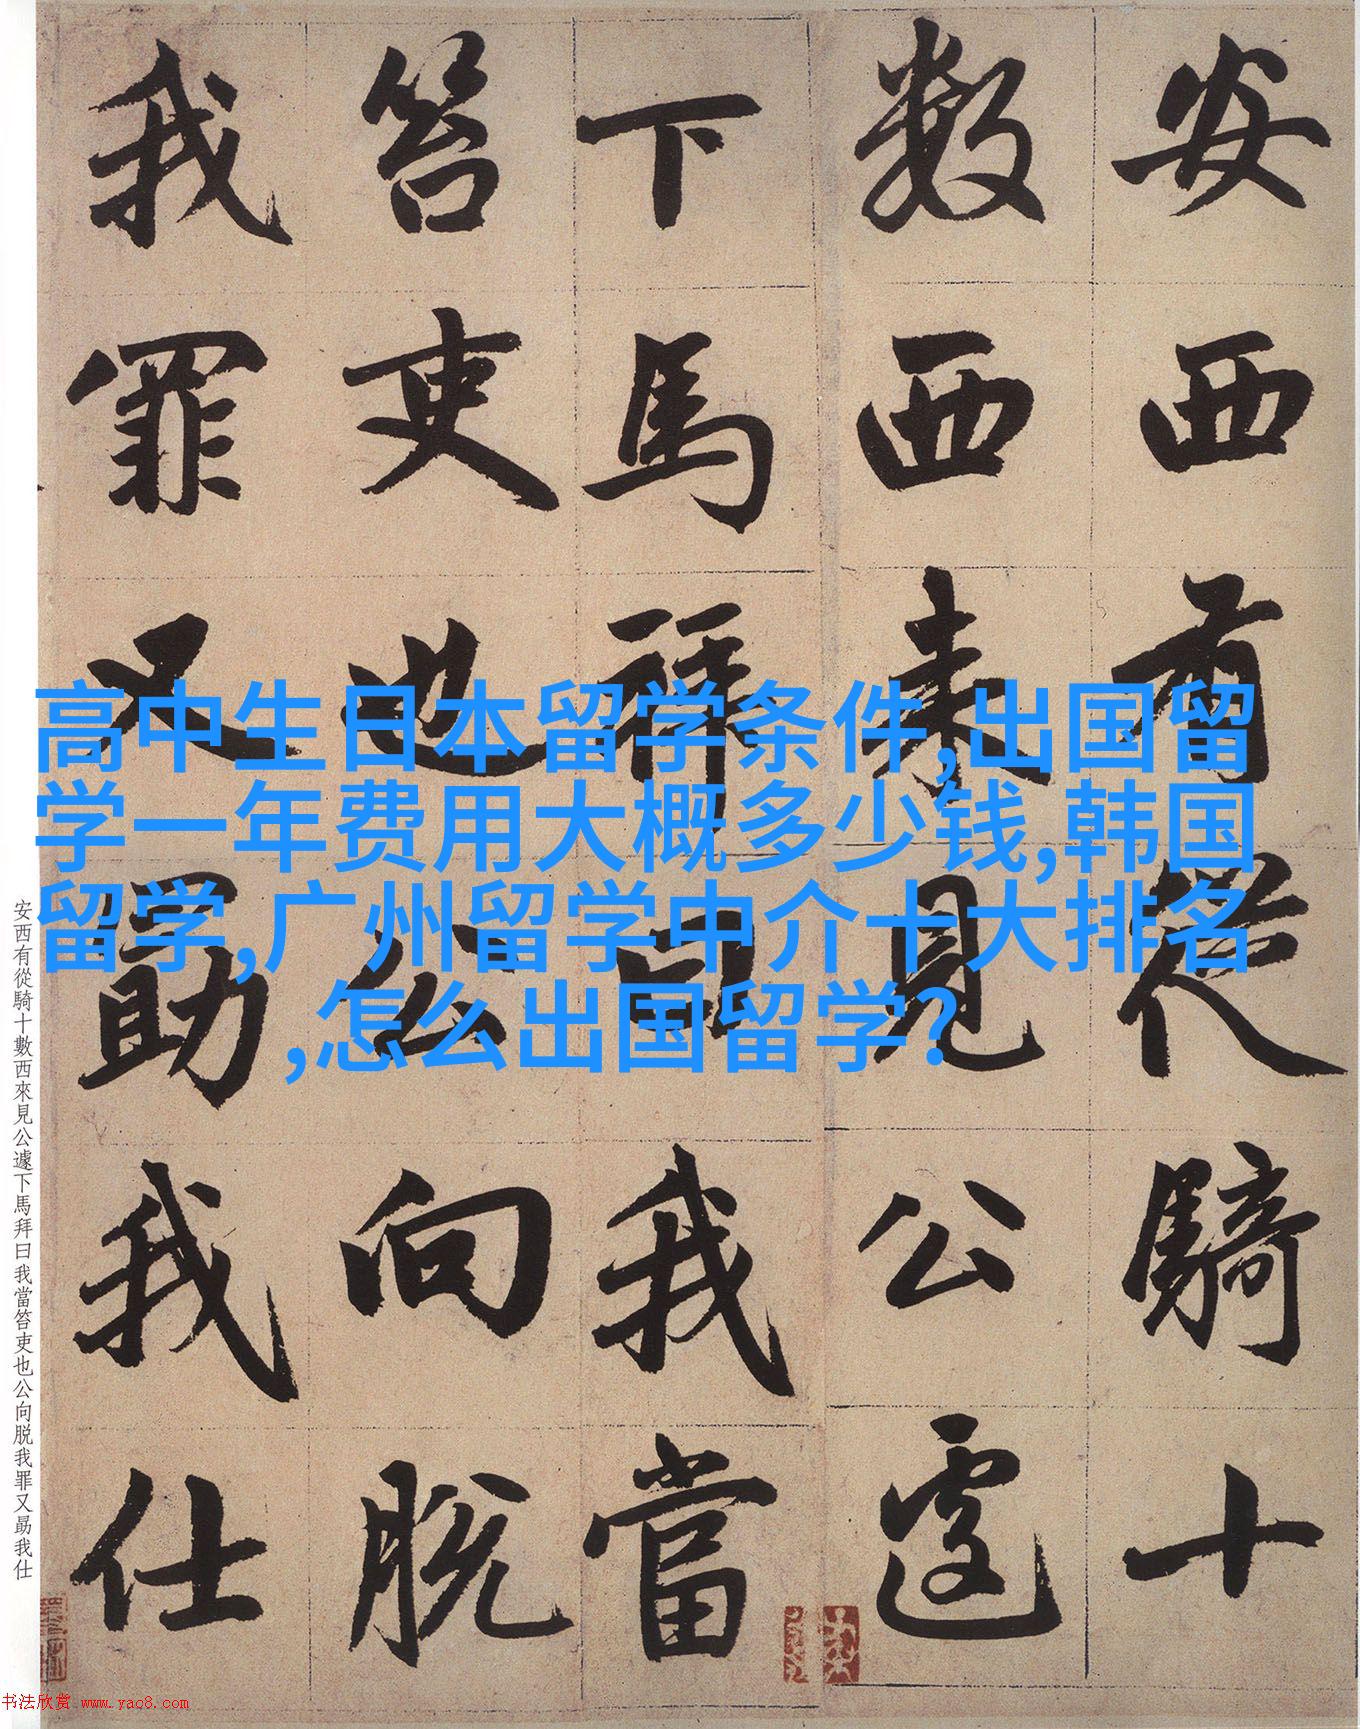 安西有從騎十
數西來見公遽
下馬拜曰我當
笞吏也公向脱
我罪又勗我仕
高中生日本留学条件,出国留
学一年费用大概多少钱,韩国
留学,广州留学中介十大排名
,怎么出国留学?
安西有從騎十數西來見公遽下馬拜曰我當笞吏也公向脱我罪又勗我仕
书法欣赏 www.yac8.com